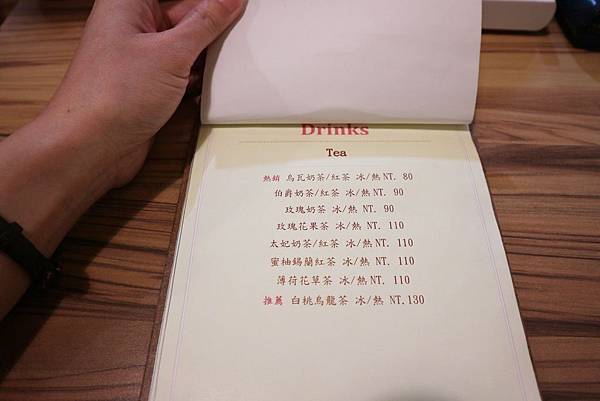 Drinks
Tea
熱銷 烏瓦奶茶/紅茶 冰/熱 NT. 80
伯爵奶茶/紅茶 冰/熱 NT. 90
玫瑰奶茶 冰/熱 NT. 90
玫瑰花果茶 冰/熱 NT. 110
太妃奶茶/紅茶 冰/熱 NT. 110
蜜柚錫蘭紅茶 冰/熱 NT. 110
薄荷花草茶 冰/熱 NT. 110
推薦 白桃烏龍茶 冰/熱 NT.130